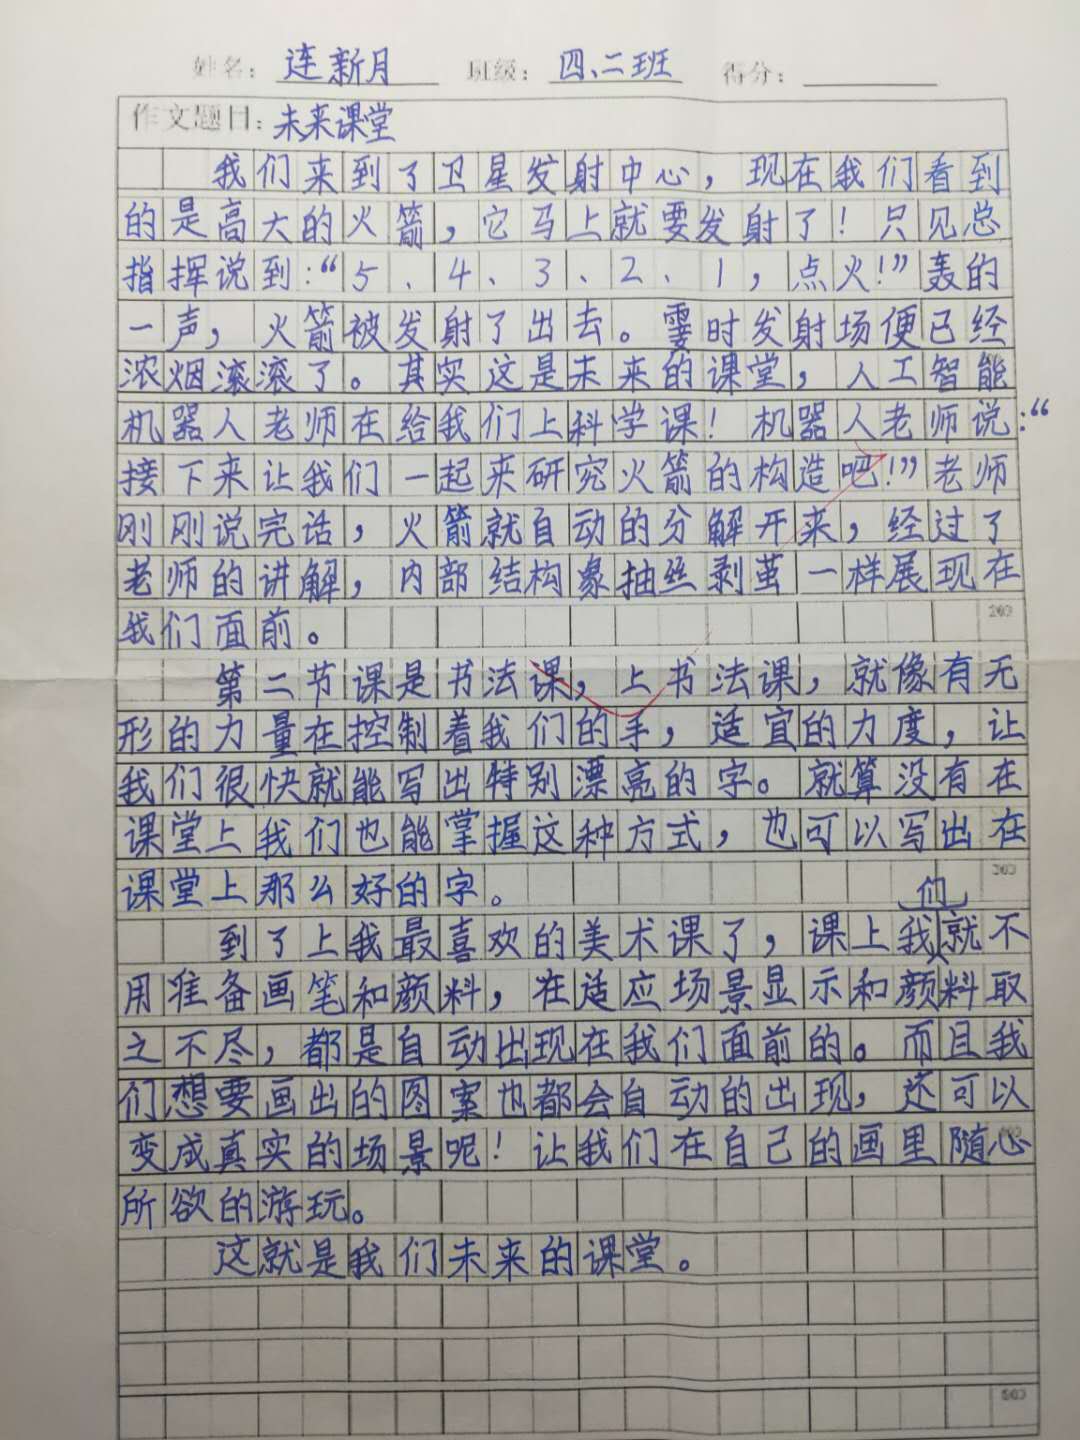 姓名：连新月 班级：四、二班 得分：
作文题目：未来课堂
我们来到了卫星发射中心，现在我们看到
的是高大的火箭，它马上就要发射了！只见总
指挥说到：“5、4、3、2、1，点火！”轰的
一声，火箭被发射了出去。霎时发射场便已经
浓烟滚滚了。其实这是未来的课堂，人工智能
机器人老师在给我们上科学课！机器人老师说：“
接下来让我们一起来研究火箭的构造吧！”老师
刚刚说完话，火箭就自动的分解开来，经过了
老师的讲解，内部结构象抽丝剥茧一样展现在
我们面前。
200
第二节课是书法课，上书法课，就像有无
形的力量在控制着我们的手，适宜的力度，让
我们很快就能写出特别漂亮的字。就算没有在
课堂上我们也能掌握这种方式，也可以写出在
课堂上那么好的字。
300
到了上我最喜欢的美术课了，课上我们就不
用准备画笔和颜料，在适应场景显示和颜料取
之不尽，都是自动出现在我们面前的。而且我
们想要画出的图案也都会自动的出现，还可以
变成真实的场景呢！让我们在自己的画里随心
所欲的游玩。
这就是我们未来的课堂。
500